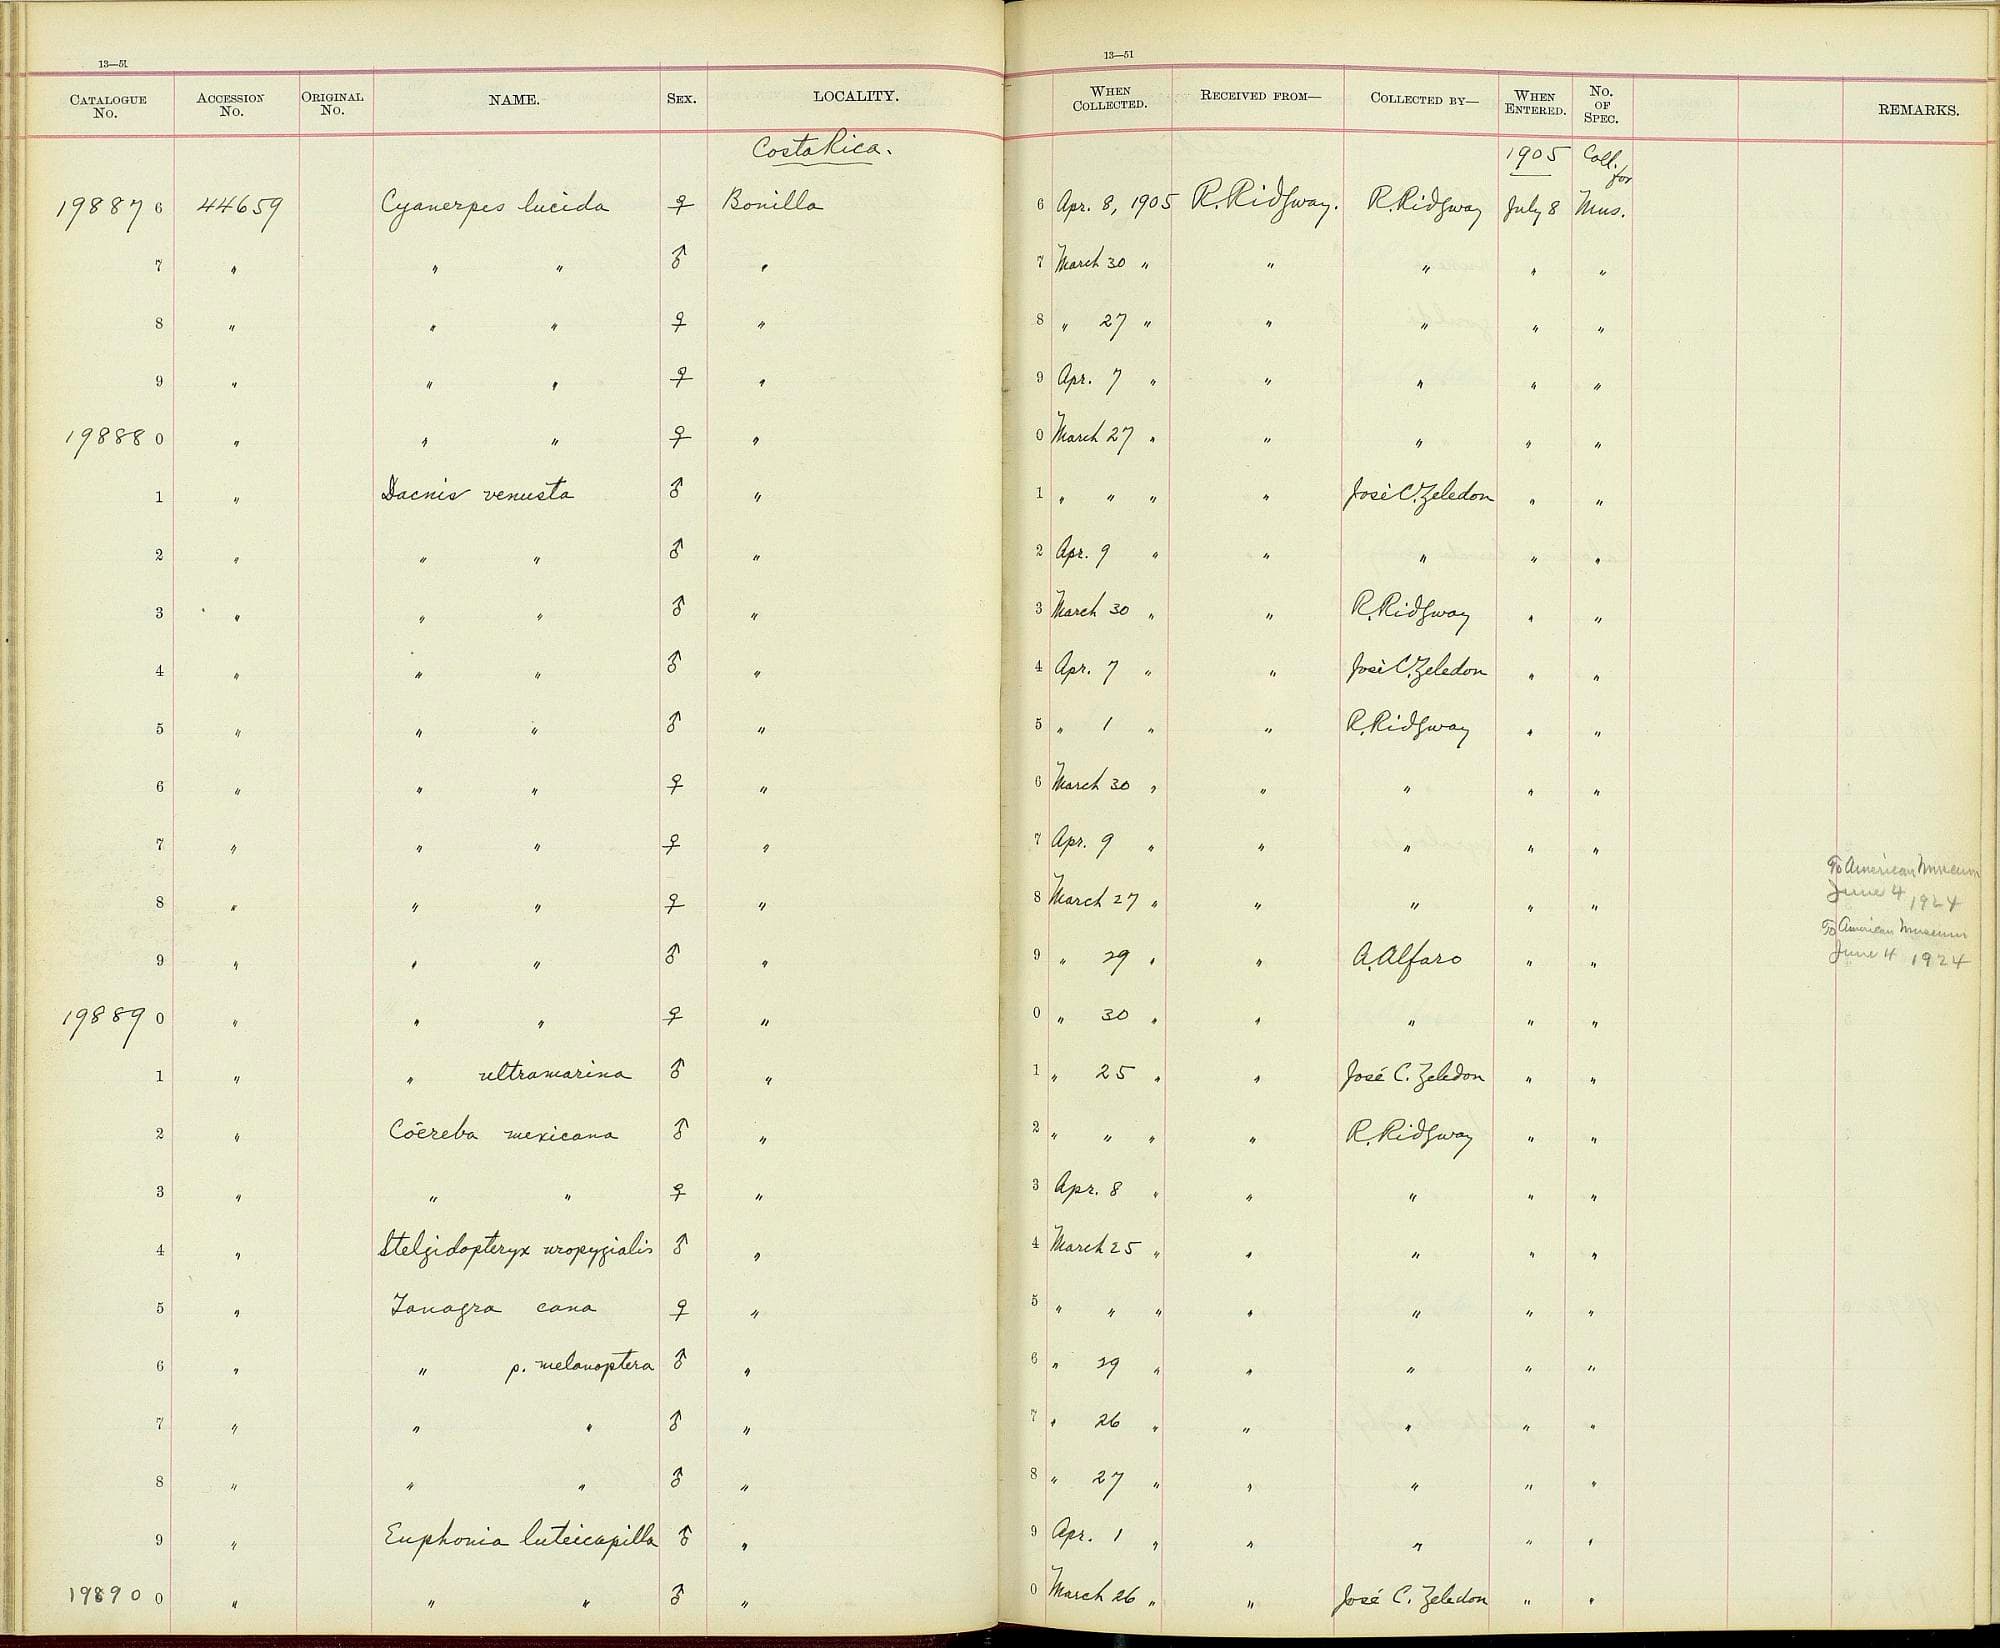 13—51 13—51
CATALOGUE No. ACCESSION No. ORIGINAL No. NAME. SEX. LOCALITY. WHEN COLLECTED. RECEIVED FROM— COLLECTED BY— WHEN ENTERED. No. OF SPEC. REMARKS.
Costa Rica. 1905 Coll. for
19887 6 44659 Cyanerpes lucida ♀ Bonilla 6 Apr. 8, 1905 R. Ridgway. R. Ridgway July 8 Mus.
7 " " " ♂ " 7 March 30 " " " " "
8 " " " ♀ " 8 " 27 " " " " "
9 " " " ♀ " 9 Apr. 7 " " " " "
19888 0 " " " ♀ " 0 March 27 " " " " "
1 " Dacnis venusta ♂ " 1 " " " " José C. Zeledon " "
2 " " " ♂ " 2 Apr. 9 " " " " "
3 " " " ♂ " 3 March 30 " " R. Ridgway " "
4 " " " ♂ " 4 Apr. 7 " " José C. Zeledon " "
5 " " " ♂ " 5 " 1 " " R. Ridgway " "
6 " " " ♀ " 6 March 30 " " " " "
7 " " " ♀ " 7 Apr. 9 " " " " "
8 " " " ♀ " 8 March 27 " " " " " To American Museum June 4 1924
9 " " " ♂ " 9 " 29 " " A. Alfaro " " To American Museum June 4 1924
19889 0 " " " ♀ " 0 " 30 " " " " "
1 " " ultramarina ♂ " 1 " 25 " " José C. Zeledon " "
2 " Cöereba mexicana ♂ " 2 " " " " R. Ridgway " "
3 " " " ♀ " 3 Apr. 8 " " " " "
4 " Stelgidopteryx uropygialis ♂ " 4 March 25 " " " " "
5 " Tanagra cana ♀ " 5 " " " " " " "
6 " " p. melanoptera ♂ " 6 " 29 " " " " "
7 " " " ♂ " 7 " 26 " " " " "
8 " " " ♂ " 8 " 27 " " " " "
9 " Euphonia luteicapilla ♂ " 9 Apr. 1 " " " " "
19890 0 " " " ♂ " 0 March 26 " " José C. Zeledon " "